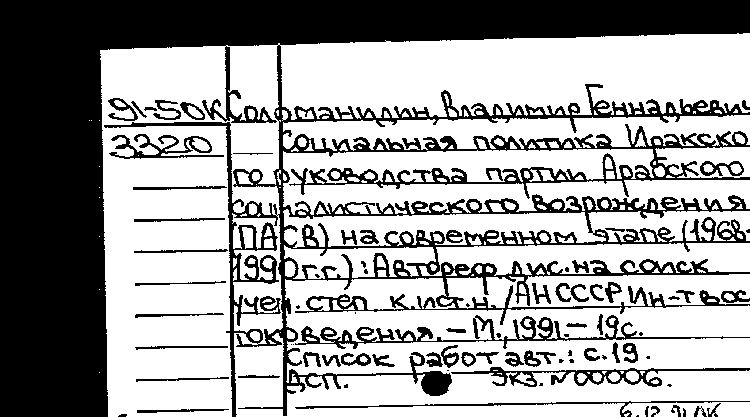 91-50К Соломанидин, Владимир Геннадьевич
3320 Социальная политика Иракско
го руководства партии Арабского
социалистического возрождения
(ПАСВ) на современном этапе (1968-
1990г.г.) : Автореф. дис. на соиск
учен. степ к.ист.н. / АН СССР, Ин-т вос
токоведения. – М., 1991. – 19с.
Список работ авт.: с.19.
ДСП. Экз. N00006.
6.12.91 ЛК